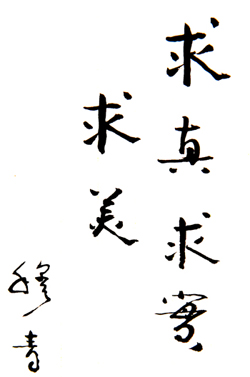 求真求實
求美
穆青